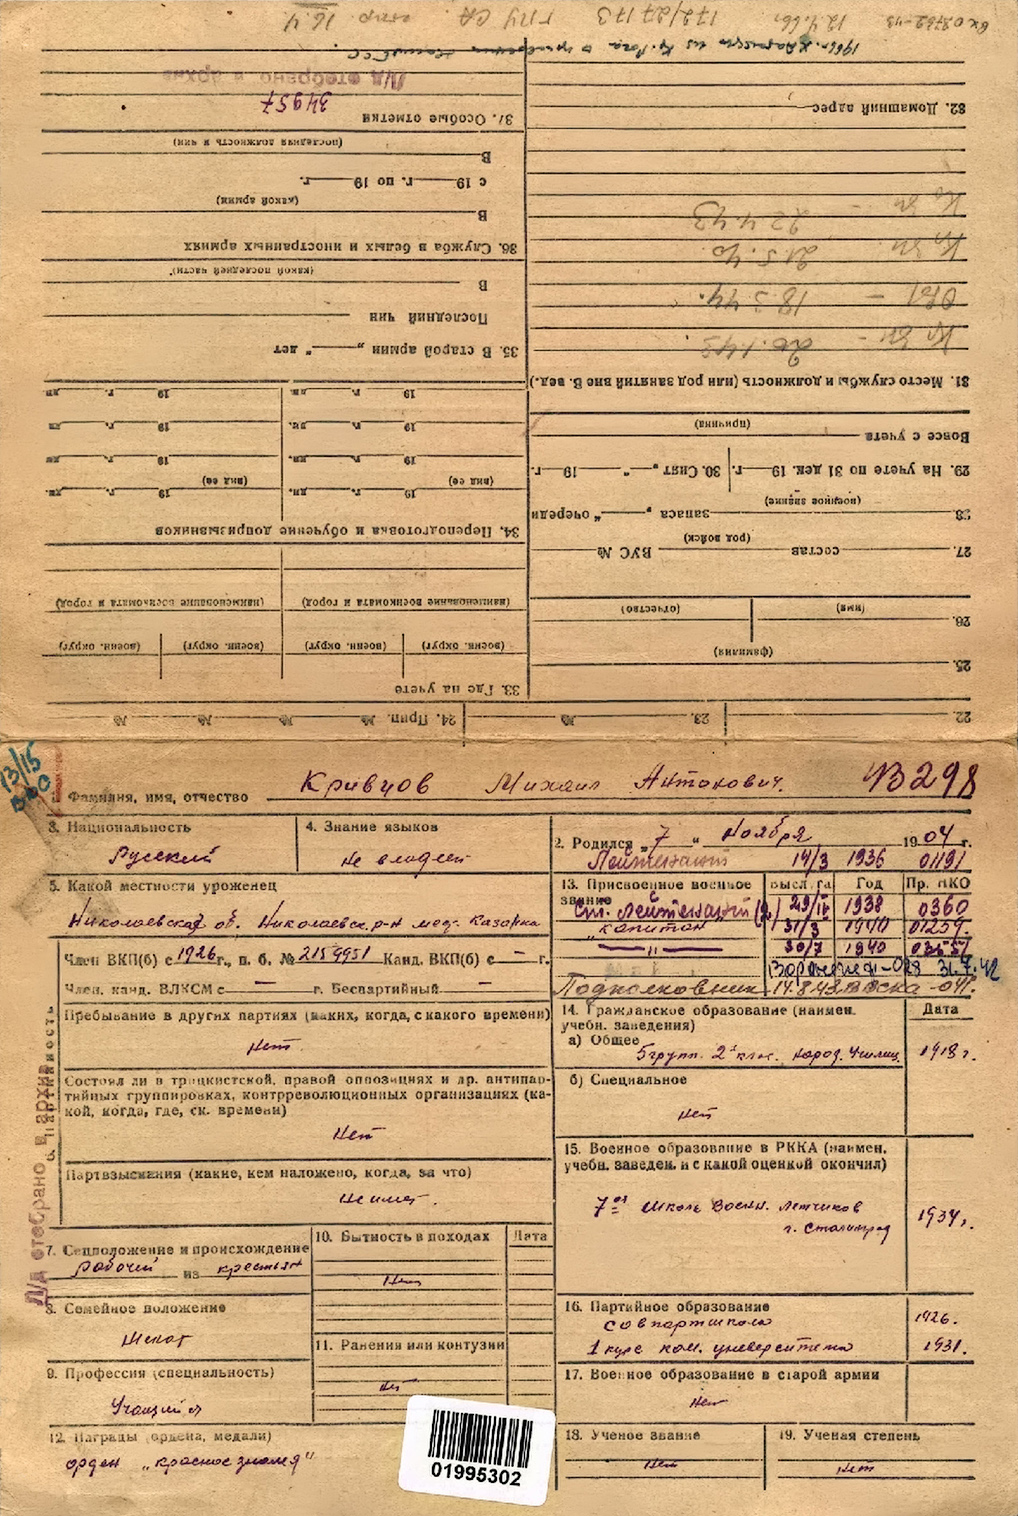 Вх 02762-43 12.4.66г 172/27173 ГПУ СА 16.4
Л/д отобрано в архив
34957
37. Особые отметки
(последняя должность и чин)
В
с 19 г. по 19 г.
(какой армии)
В
36. Служба в белых и иностранных армиях
(какой последней части)
В
Последний чин
35. В старой армии „ “ лет
19 г. дн. 19 г. дн.
19 г. дн. 19 г. дн.
19 г. дн. 19 г. дн.
(вид ее) (вид ее)
19 г. дн. 19 г. дн.
34. Переподготовка и обучение допризывников
(наименование военкомата и город) (наименование военкомата и город)
(воен. округ) (воен. округ) (воен. округ) (воен. округ)
33. Где на учете
32. Домашний адрес
22.4.43
21.5.43
18.3.44.
31. Место службы и должность (или род занятий вне В. вед.)
(причина)
Вовсе с учета
29. На учете по 31 дек. 19 г. 30. Снят „ “ 19 г.
(военное звание)
28. запаса „ “ очереди
(род войск)
27. состав ВУС №
(имя) (отчество)
26.
(фамилия)
25.
22. 23. № 24. Прип. № № № №
13/15
1. Фамилия, имя, отчество Кривцов Михаил Антонович. 43298
3. Национальность
Русский
4. Знание языков
Не владеет
2. Родился „7“ Ноября 1904 г.
Лейтенант 14/3 1936 01191
5. Какой местности уроженец
Николаевская об. Николаевск. р-н мест. Казанка
13. Присвоенное военное звание Число Год Пр. НКО
Ст. Лейтенант 29/IV 1938 0360
„капитан 31/3 1940 01259.
„ 30/7 1940 03557
Воронежск-028 31.7.42
Подполковник 14.8.43
Член ВКП(б) с 1926 г., п. б. № 2159951 Канд. ВКП(б) с – г.
Член. канд. ВЛКСМ с – г. Беспартийный –
6. Партийность
Пребывание в других партиях (каких, когда, с какого времени)
Нет.
Состоял ли в троцкистской, правой оппозициях и др. антипар-
тийных группировках, контрреволюционных организациях (ка-
кой, когда, где, ск. времени)
Нет
Партвзыскания (какие, кем наложено, когда, за что)
Не имеет.
Л/д отобрано в архив
14. Гражданское образование (наимен. учебн. заведения) Дата
а) Общее
5 групп. 2х клас. народ. Училищ. 1918 г.
б) Специальное
Нет
15. Военное образование в РККА (наимен.
учебн. заведен. и с какой оценкой окончил)
7ая школа Военн. Летчиков
г. Сталинград 1934 г.
7. Соцположение и происхождение
Рабочий из крестьян
8. Семейное положение
Женат
9. Профессия (специальность)
Учащийся
10. Бытность в походах Дата
Нет
11. Ранения или контузии
Нет
12. Награды (ордена, медали)
орден „красное знамя“
16. Партийное образование
совпартшкола 1926.
1 курс ком. университета 1931.
17. Военное образование в старой армии
Нет
18. Ученое звание
Нет
19. Ученая степень
Нет
01995302